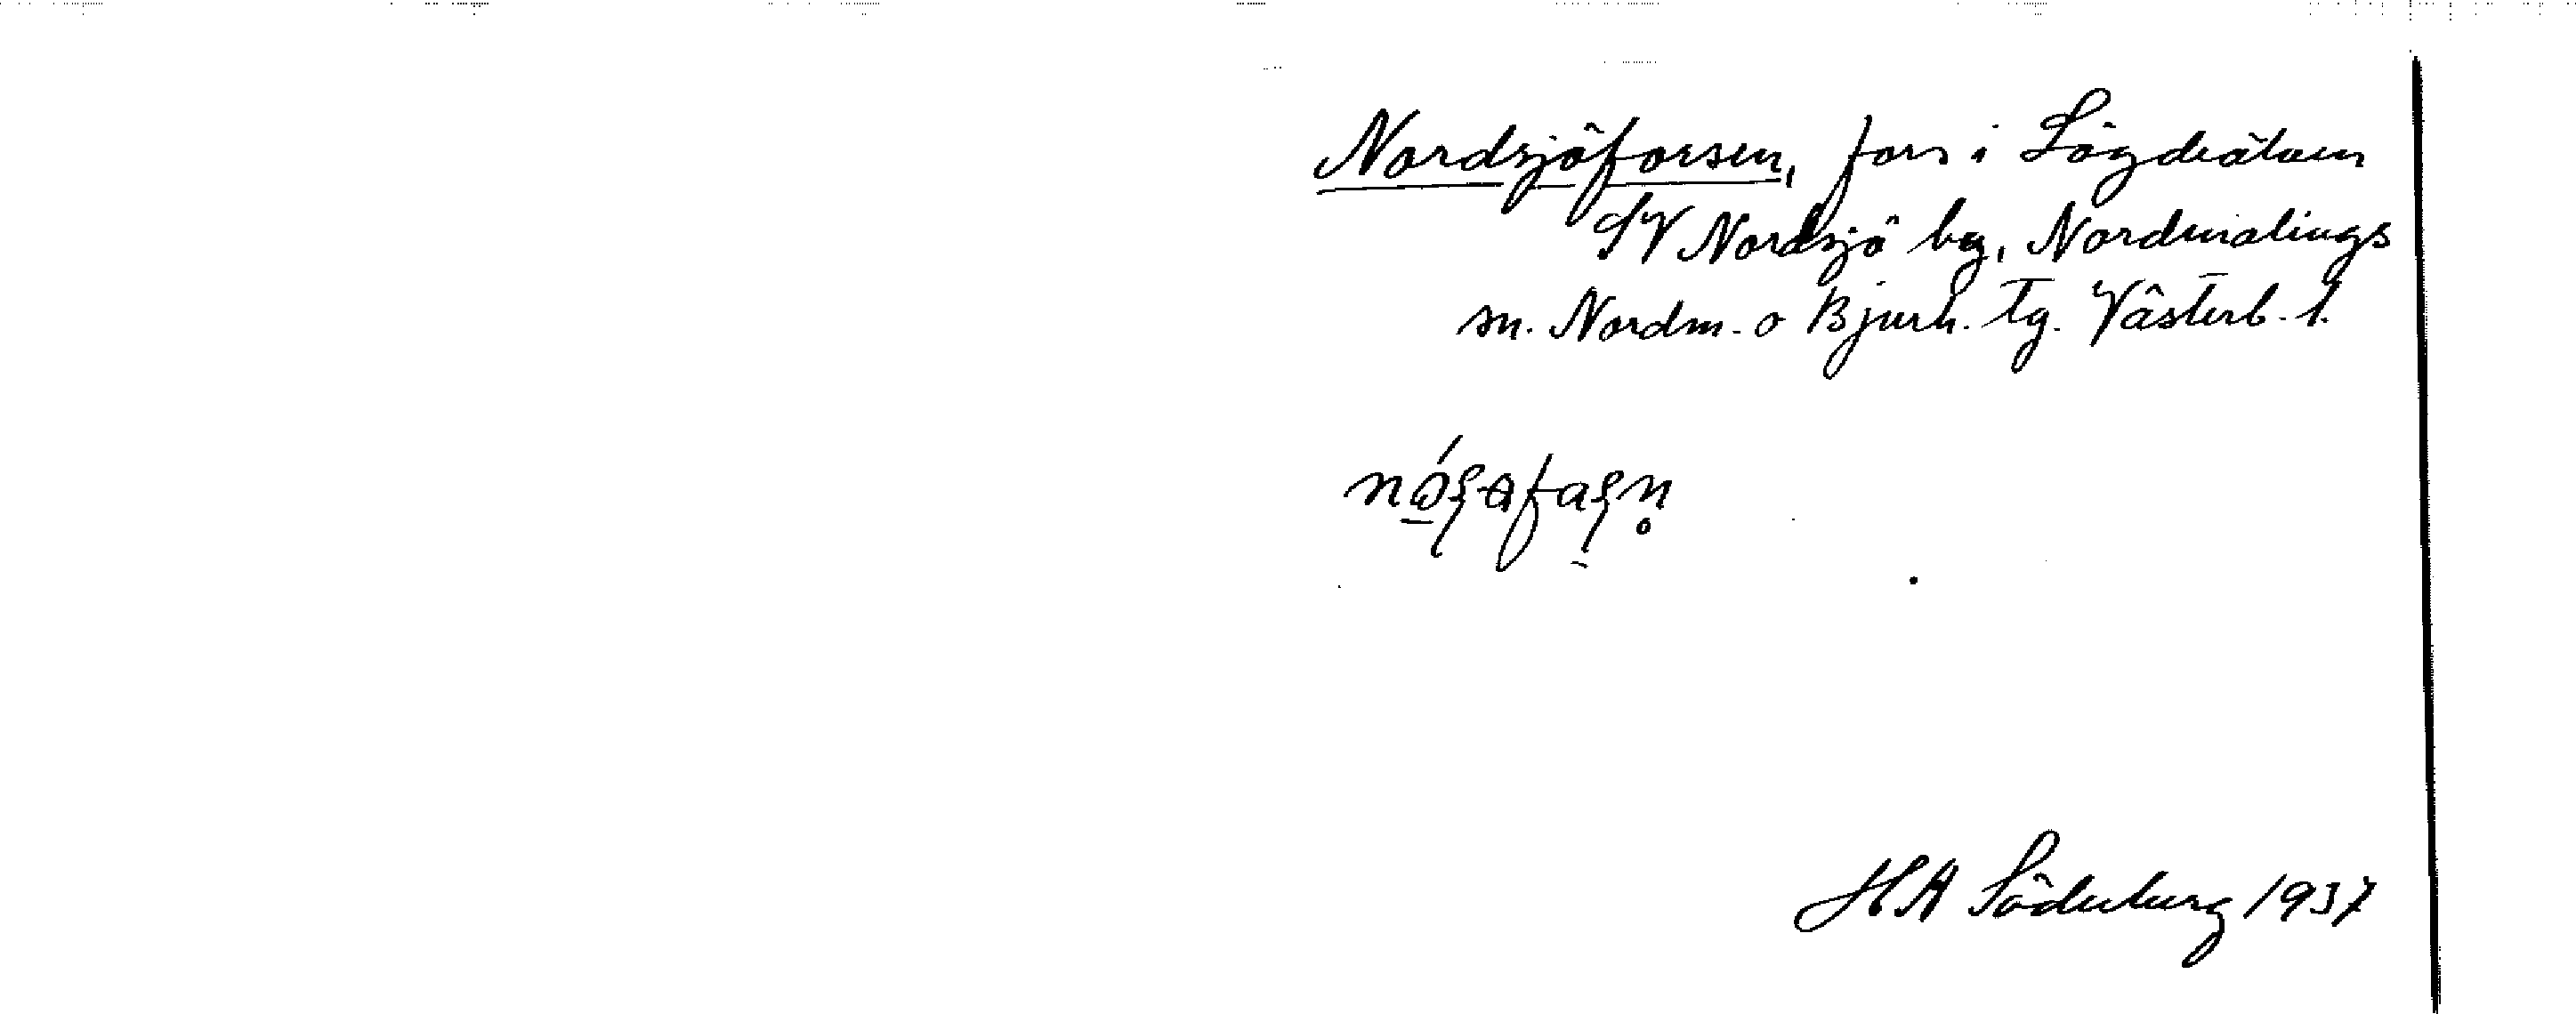 Nordsjöforsen, fors i Lögdeälven
SV Nordsjö by, Nordmalings
sn. Nordm. o Bjurh. Tg. Västerb. l.
H A Söderberg 1937